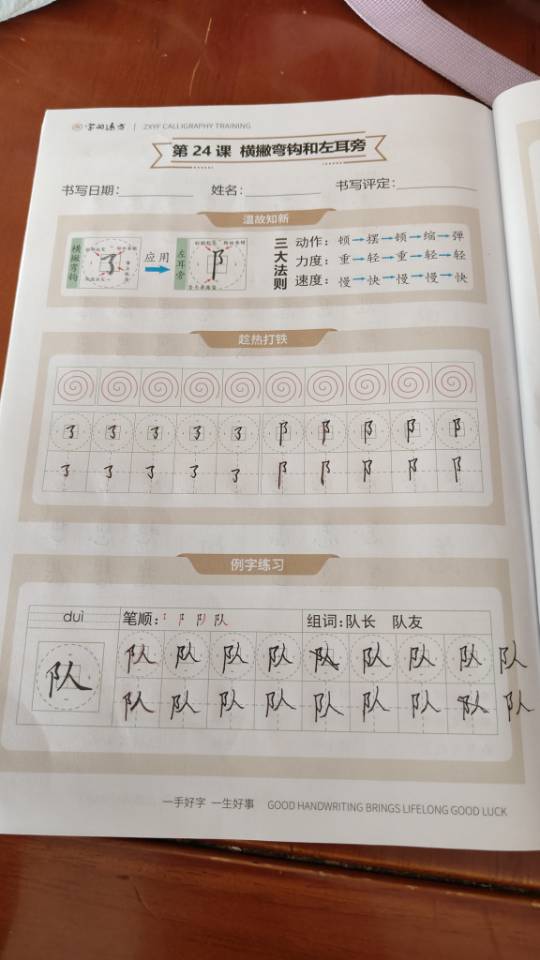 字的速方 | ZXYF CALLIGRAPHY TRAINING
第 24 课 横撇弯钩和左耳旁
书写日期：__________ 姓名：__________ 书写评定：__________
温故知新
横撇弯钩 应用 左耳旁
三大法则
动作：顿→摆→顿→缩→弹
力度：重→轻→重→轻→轻
速度：慢→快→慢→慢→快
趁热打铁
㇌ ㇌ ㇌ ㇌ ㇌ 阝 阝 阝 阝 阝
㇌ ㇌ ㇌ ㇌ ㇌ 阝 阝 阝 阝 阝
例字练习
duì 笔顺：㇌ 阝 阝丿 队 组词：队长 队友
队
队 队 队 队 队 队 队 队 队
队 队 队 队 队 队 队 队 队
一手好字 一生好事 GOOD HANDWRITING BRINGS LIFELONG GOOD LUCK